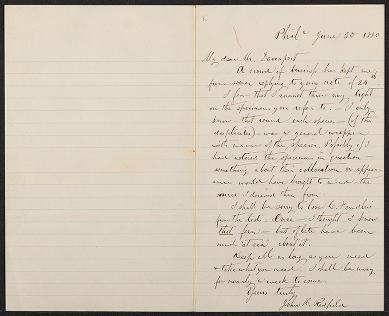 Phila June 30 1880
My dear Mr. Davenport
A crowd of business has kept me
from sooner replying to your note of 24th
I fear that I cannot throw any light
on the specimens you refer to. I only
know that round each species – (of the
duplicates) – was a general wrapper
with name of the species. Possibly if I
had noticed the specimens in question –
something about their collocation, or appear-
ance would have brought to mind the
source I derived them from.
I shall be sorry to lose C. Fendleri
from the list. Once – I thought I knew
that fern – but of late have been
much "at sea" about it.
Keep all as long as you need
& take what you need. I shall be away
for nearly a week to come.
Yours truly
John H. Redfield